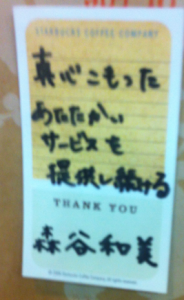 STARBUCKS COFFEE COMPANY
真心こもった
あたたかい
サービスを
提供し続ける
THANK YOU
森谷和美